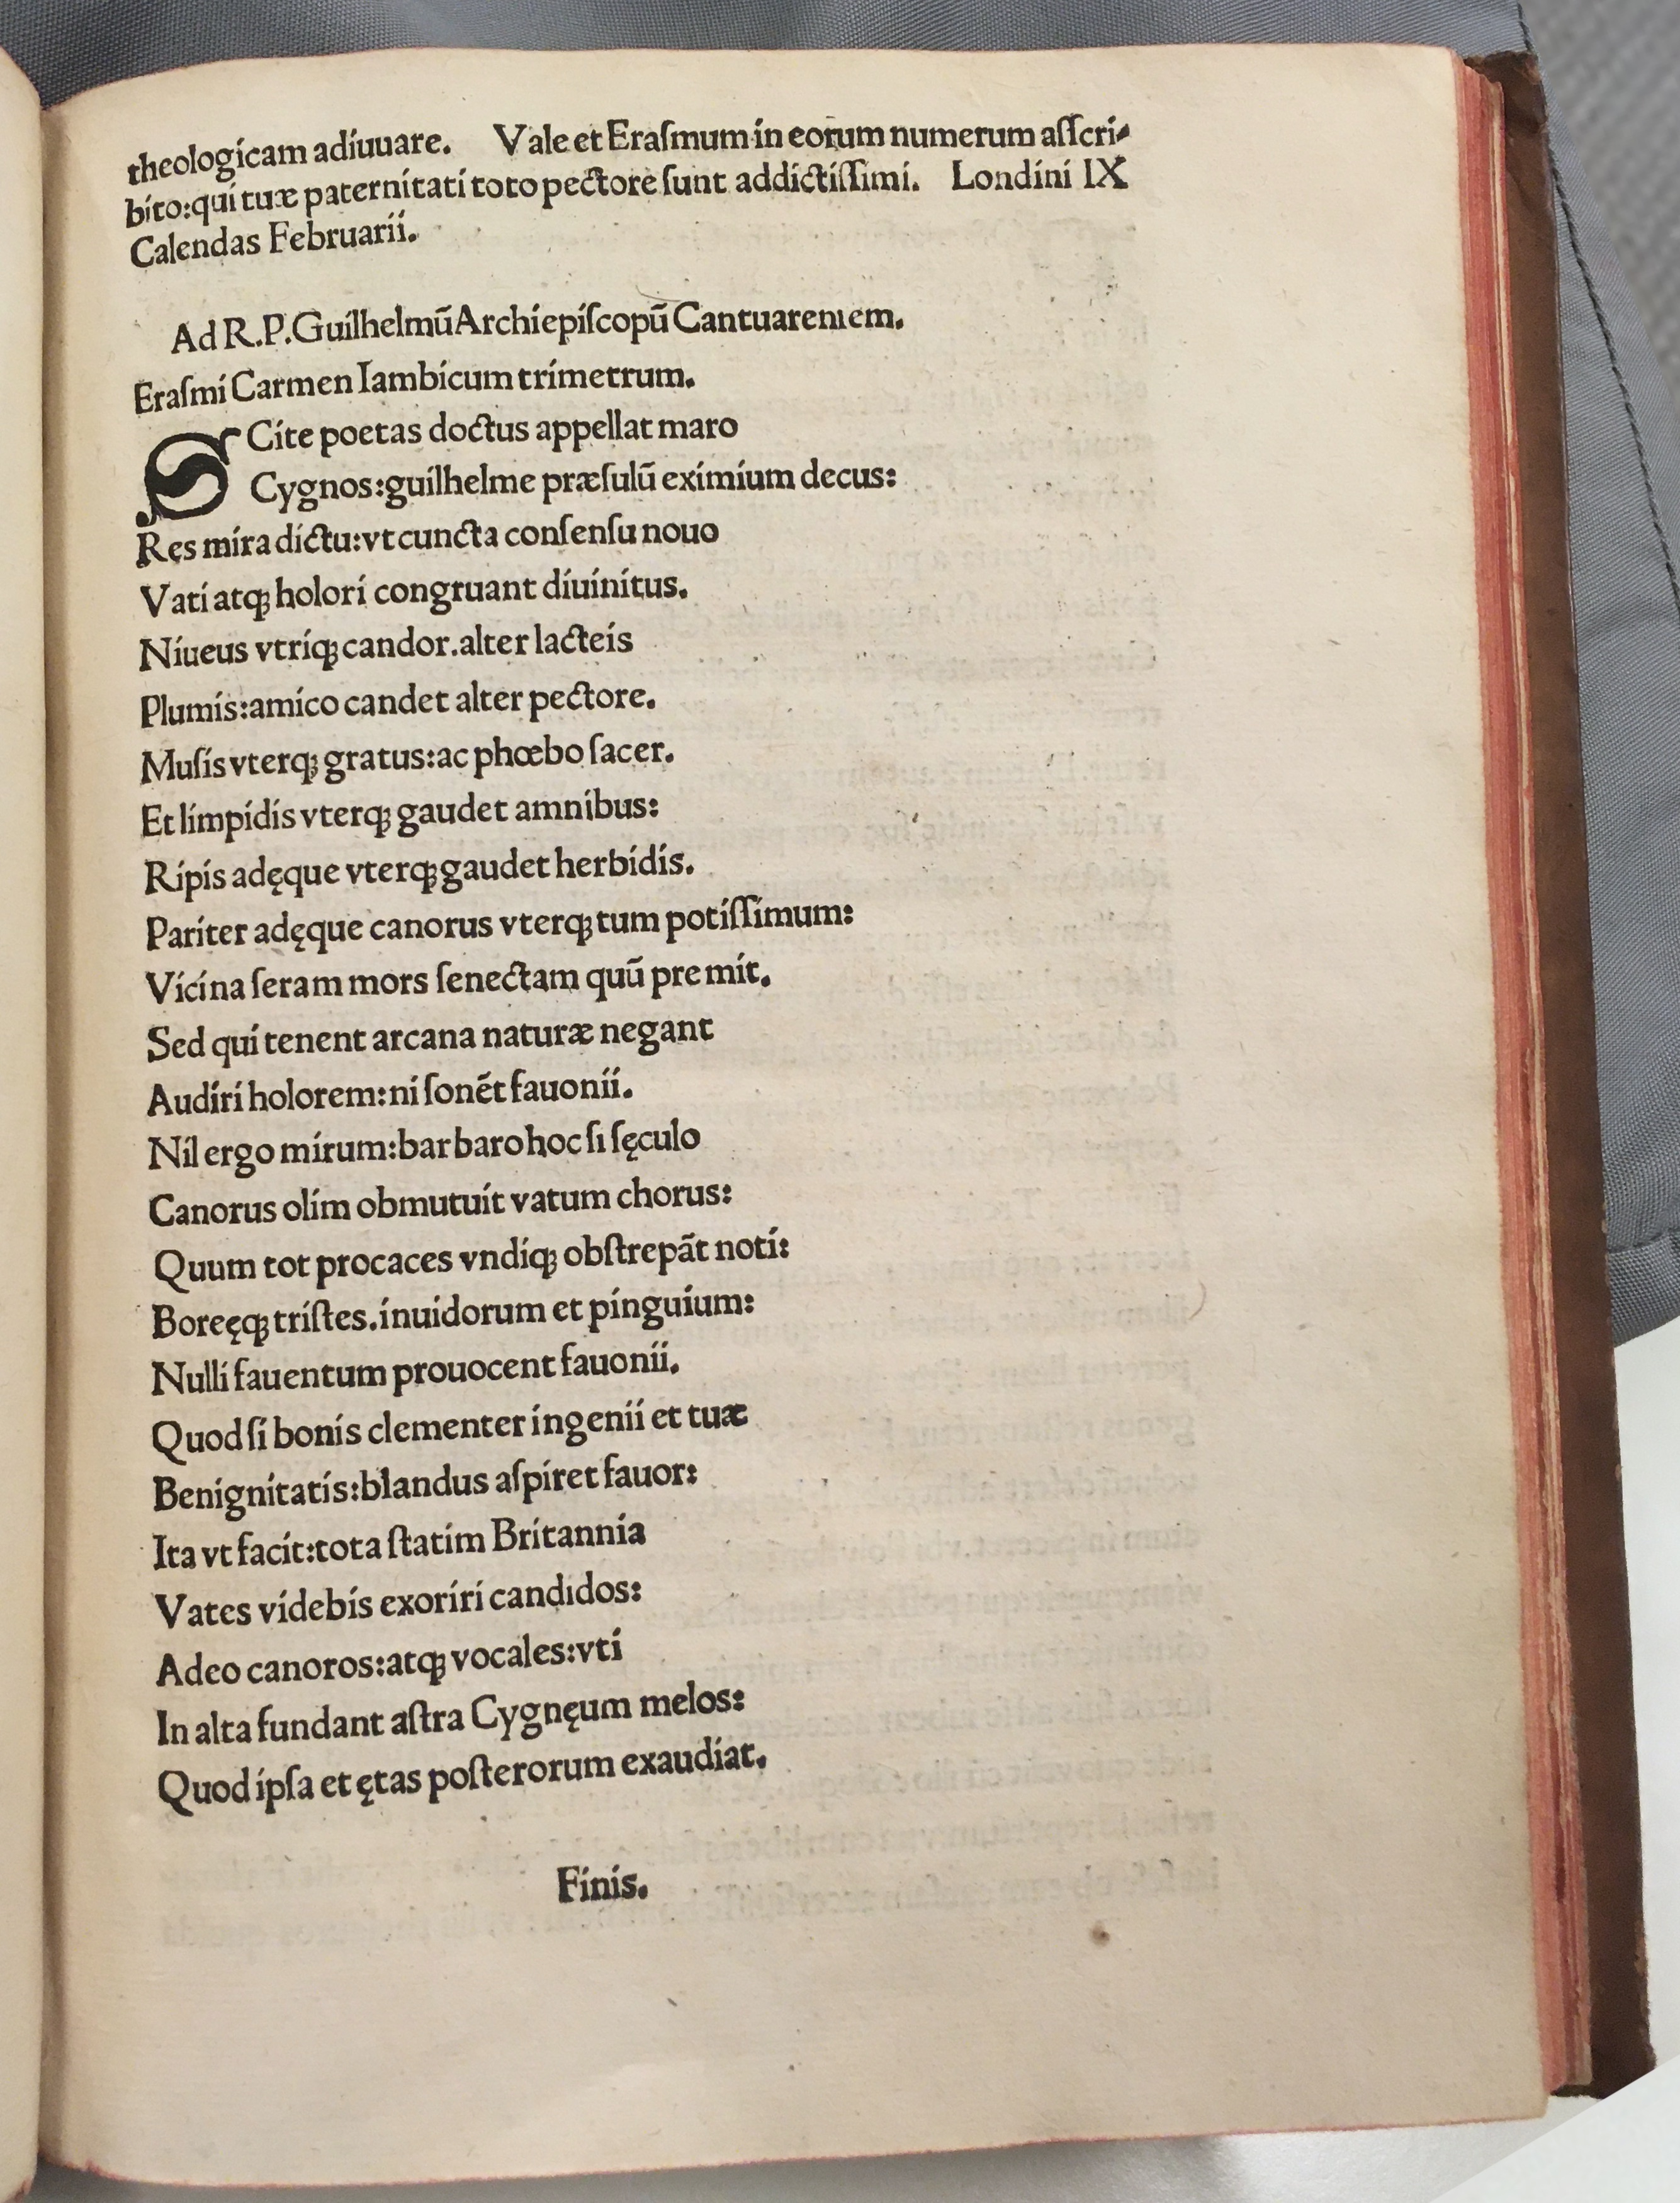 theologicam adiuuare. Vale et Eraſmum in eorum numerum aſſcri-
bito:qui tuæ paternitati toto pectore ſunt addictiſſimi. Londini IX
Calendas Februarii.
Ad R.P.Guilhelmū Archiepiſcopū Cantuarenıem.
Eraſmi Carmen Iambicum trimetrum.
SCite poetas doctus appellat maro
Cygnos:guilhelme præſulū eximium decus:
Res mira dictu:vt cuncta conſenſu nouo
Vati atqꝫ holori congruant diuinitus.
Niueus vtriqꝫ candor.alter lacteis
Plumis:amico candet alter pectore.
Muſis vterqꝫ gratus:ac phœbo ſacer.
Et limpidis vterqꝫ gaudet amnibus:
Ripis adęque vterqꝫ gaudet herbidis.
Pariter adęque canorus vterqꝫ tum potiſſimum:
Vicina ſeram mors ſenectam quū premit.
Sed qui tenent arcana naturæ negant
Audiri holorem:ni ſonēt fauonii.
Nil ergo mirum:barbaro hoc ſi ſęculo
Canorus olim obmutuit vatum chorus:
Quum tot procaces vndiqꝫ obſtrepāt noti:
Boreęqꝫ triſtes.inuidorum et pinguium:
Nulli fauentum prouocent fauonii.
Quod ſi bonis clementer ingenii et tuæ
Benignitatis:blandus aſpiret fauor:
Ita vt facit:tota ſtatim Britannia
Vates videbis exoriri candidos:
Adeo canoros:atqꝫ vocales:vti
In alta fundant aſtra Cygnęum melos:
Quod ipſa et ętas poſterorum exaudiat.
Finis.